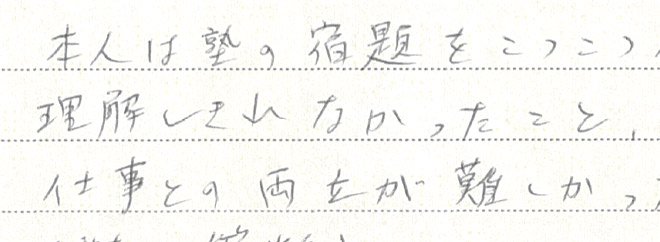 本人は塾の宿題をこつこつ
理解しきれなかったこと、
仕事との両立が難しかっ